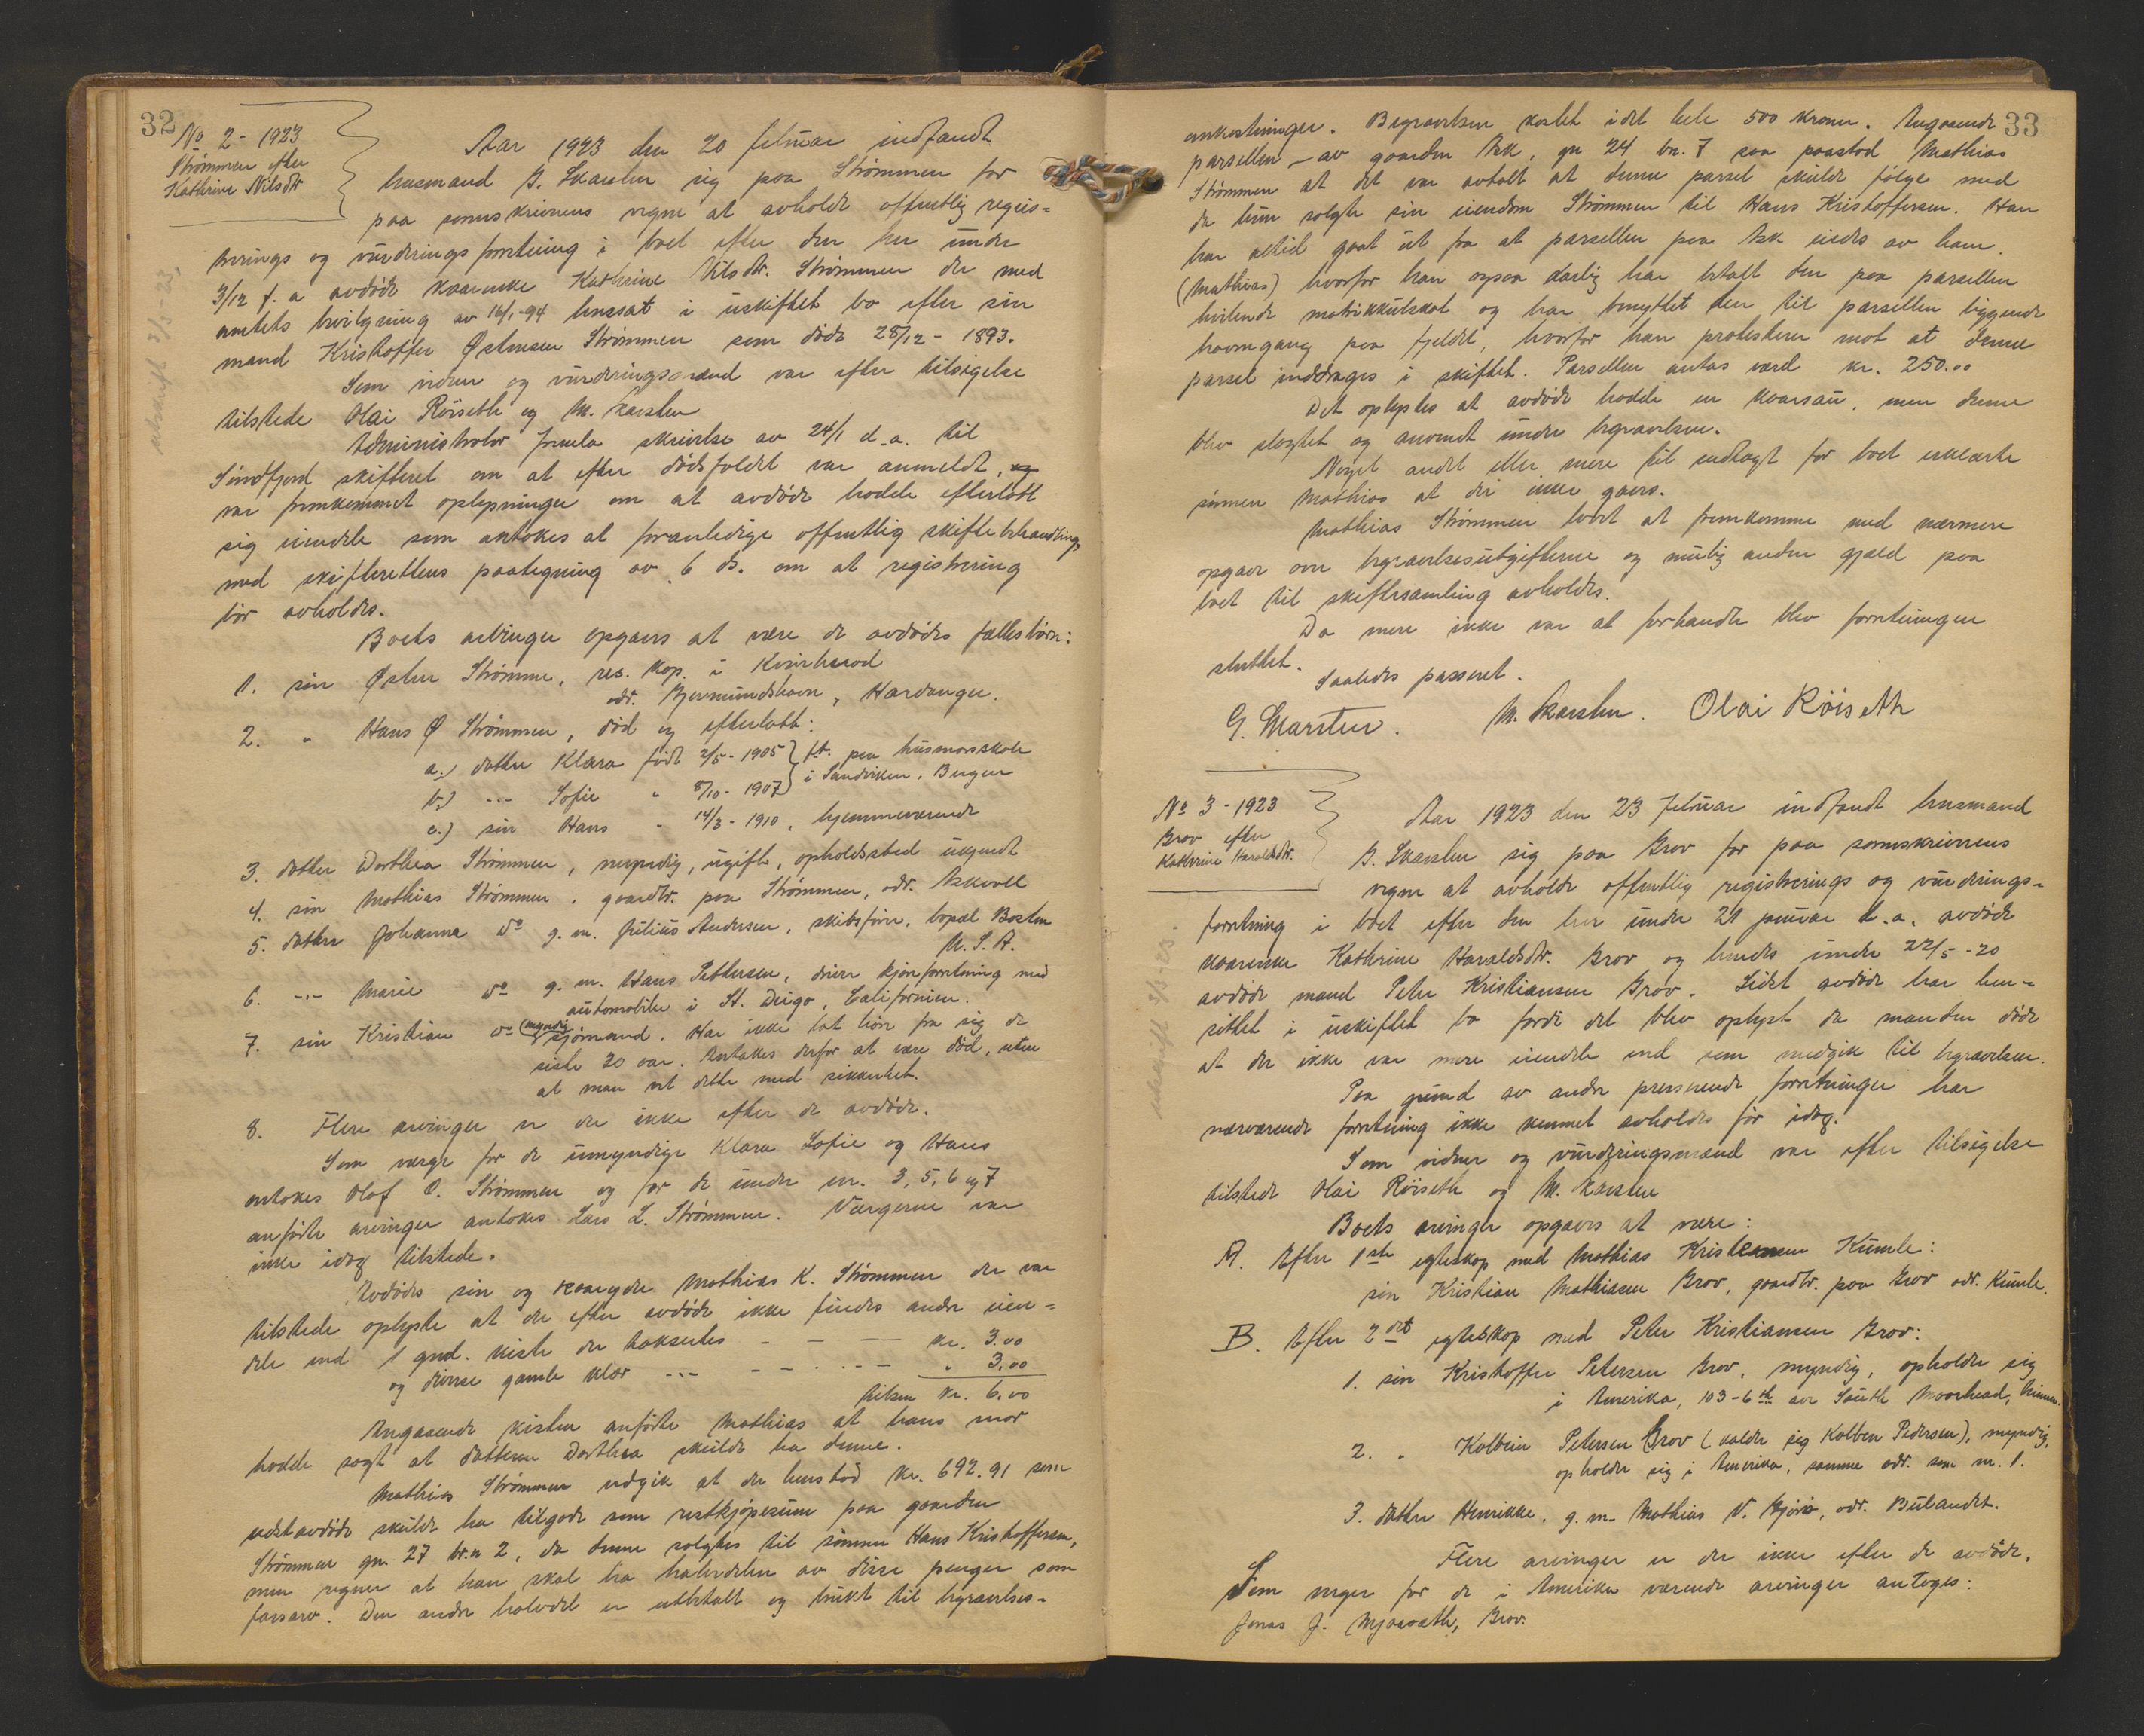 32
No 2 - 1923
Strømmen efter
Kathrine Nilsdtr
Aar 1923 den 20 februar indfandt
lensmand G. Skarsten sig paa Strømmen for
paa sorenskriverens vegne at avholde offentlig regis=
trerings og vurderingsforretning i boet efter den her under
3/12 f. a avdøde kaarenke Kathrine Nilsdtr. Strømmen der med
amtets bevilgning av 16/1-94 hensat i uskiftet bo efter sin
mand Kristoffer Østensen Strømmen som døde 28/12 - 1893.
Som vidner og vurderingsmænd var efter tilsigelse
tilstede Olai Röiseth og M. Karsten
Administrator fremla skrivelse av 24/1 d.a. til
Sundfjord skifteret om at efter dødsfaldet var anmeldt,
var fremkommet oplysninger om at avdøde hadde efterlatt
sig eiendele som antokes at foranledige offentlig skiftebehandling
med skifterettens paategning av 6 ds. om at registrering
bör avholdes.
Boets arvinger opgaves at være de avdødes fællesbörn:
1. sön Østen Strømme, res. kap. i Kvinherad
adr. Gjermundshavn, Hardanger.
2. " Hans Ø Strømmen, död og efterlatt:
a.) datter Klara född 2/5 - 1905 } f.t. paa husmorskole
b.) -"- Sofie " 8/10 - 1907 } i Sandviken, Bergen
c.) sön Hans " 14/3 - 1910, hjemmeværende
3. datter Dorthea Strømmen, myndig, ugift, opholdssted ukjendt
4. sön Mathias Strømmen, gaardbr. paa Strømmen, adr. Askvoll
5. datter Johanna do g. m. Julius Andersen, skibsförer, bopæl Boston
U. S. A.
6. -"- Marie do g. m. Hans Pettersen, driver kjöreforretning med
automobiler i St. Diego, Californien.
7. sön Kristian do (myndig) sjömand. Har ikke lat höre fra sig de
siste 20 aar. Antakes derfor at være död, uten
at man vet dette med sikkerhet.
8. Flere arvinger er der ikke efter de avdöde.
Som verge for de umyndige Klara Sofie og Hans
antokes Olaf O. Strømmen og for de under nr. 3, 5, 6 og 7
anførte arvinger antokes Lars L. Strømmen. Vergerne var
ikke idag tilstede.
Avdødes sön og kaaryder Mathias K. Strømmen der var
tilstede oplyste at der efter avdøde ikke findes andre eien=
dele end 1 gml. kiste der takseredes - - - kr. 3.00
og diverse gamle klær -"- - - - - " 3.00
tilsm kr. 6.00
Angaaende kisten anførte Mathias at hans mor
hadde sagt at datteren Dorthea skulde ha denne.
Mathias Strømmen vedgik at der henstod kr. 692.91 som
avdøde skulde ha tilgode som restkjøpesum paa gaarden
Strømmen gn. 27 br.n 2, da denne solgtes til sönnen Hans Kristoffersen,
men regner at han skal ha halvdelen av disse penger som
farsarv. Den andre halvdel er utbetalt og brukt til begravelses=
utskrift 3/3 23.
33
omkostninger. Begravelsen kostet i det hele 500 kroner. Angaaende
parsellen - av gaarden Ask, gn 24 br. 7 saa paastod Mathias
Strømmen at det var avtalt at denne parsel skulde følge med
da hun solgte sin eiendom Strømmen til Hans Kristoffersen. Han
har altid gaat ut fra at parsellen paa Ask eiedes av ham
(Mathias) hvorfor han ogsaa aarlig har betalt den paa parsellen
hvilende matrikkulskat og har benyttet den til parsellen liggende
havnegang paa fjeldet, hvorfor han protesterer mot at denne
parsel inddrages i skiftet. Parsellen antas værd kr. 250.00
Det oplystes at avdøde hadde en kaarsau, men denne
blev slagtet og anvendt under begravelsen.
Noget andet eller mere til indtægt for boet erklærte
sönnen Mathias at der ikke gaves.
Mathias Strømmen lovet at fremkomme med nærmere
opgave over begravelsesutgifterne og mulig anden gjæld paa
boet til skiftesamling avholdes.
Da mere ikke var at forhandle blev forretningen
sluttet.
Saaledes passeret.
G. Skarsten. M. Karsten. Olai Röiseth
No 3 - 1923
Grov efter
Kathrine Haraldsdtr.
Aar 1923 den 23 februar indfandt lensmand
G. Skarsten sig paa Grov for paa sorenskriverens
vegne at avholde offentlig registrerings og vurderings=
forretning i boet efter den her under 21 januar d.a. avdøde
kaarenke Kathrine Haraldsdtr. Grov og hendes under 22/5 - 20
avdøde mand Peter Kristiansen Grov. Sidst avdøde har hen=
sittet i uskiftet bo fordi det blev oplyst da manden døde
at der ikke var mere eiendele end som medgik til begravelsen.
Paa grund av andre presserende forretninger har
nærværende forretning ikke kunnet avholdes før idag.
Som vidner og vurderingsmænd var efter tilsigelse
tilstede Olai Röiseth og M. Karsten
Boets arvinger opgaves at være:
A. Efter 1ste egteskap med Mathias Kristensen Kumle:
sön Kristian Mathiasen Grov, gaardbr. paa Grov adr. Kumle.
B. Efter 2det egteskap med Peter Kristiansen Grov:
1. sön Kristoffer Petersen Grov, myndig, opholder sig
i Amerika, 103 - 6th ave South Moorhead, Minnes.
2. " Kolbein Petersen Grov (kalder sig Kolben Pedersen), myndig,
opholder sig i Amerika, samme adr. som nr. 1.
3. datter Henrikke, g. m. Mathias V. Gjörö, adr. Bulandet.
Flere arvinger er der ikke efter de avdøde.
Som verger for de i Amerika værende arvinger antoges:
Jonas J. , Grov.
utskrift 3/3-23.